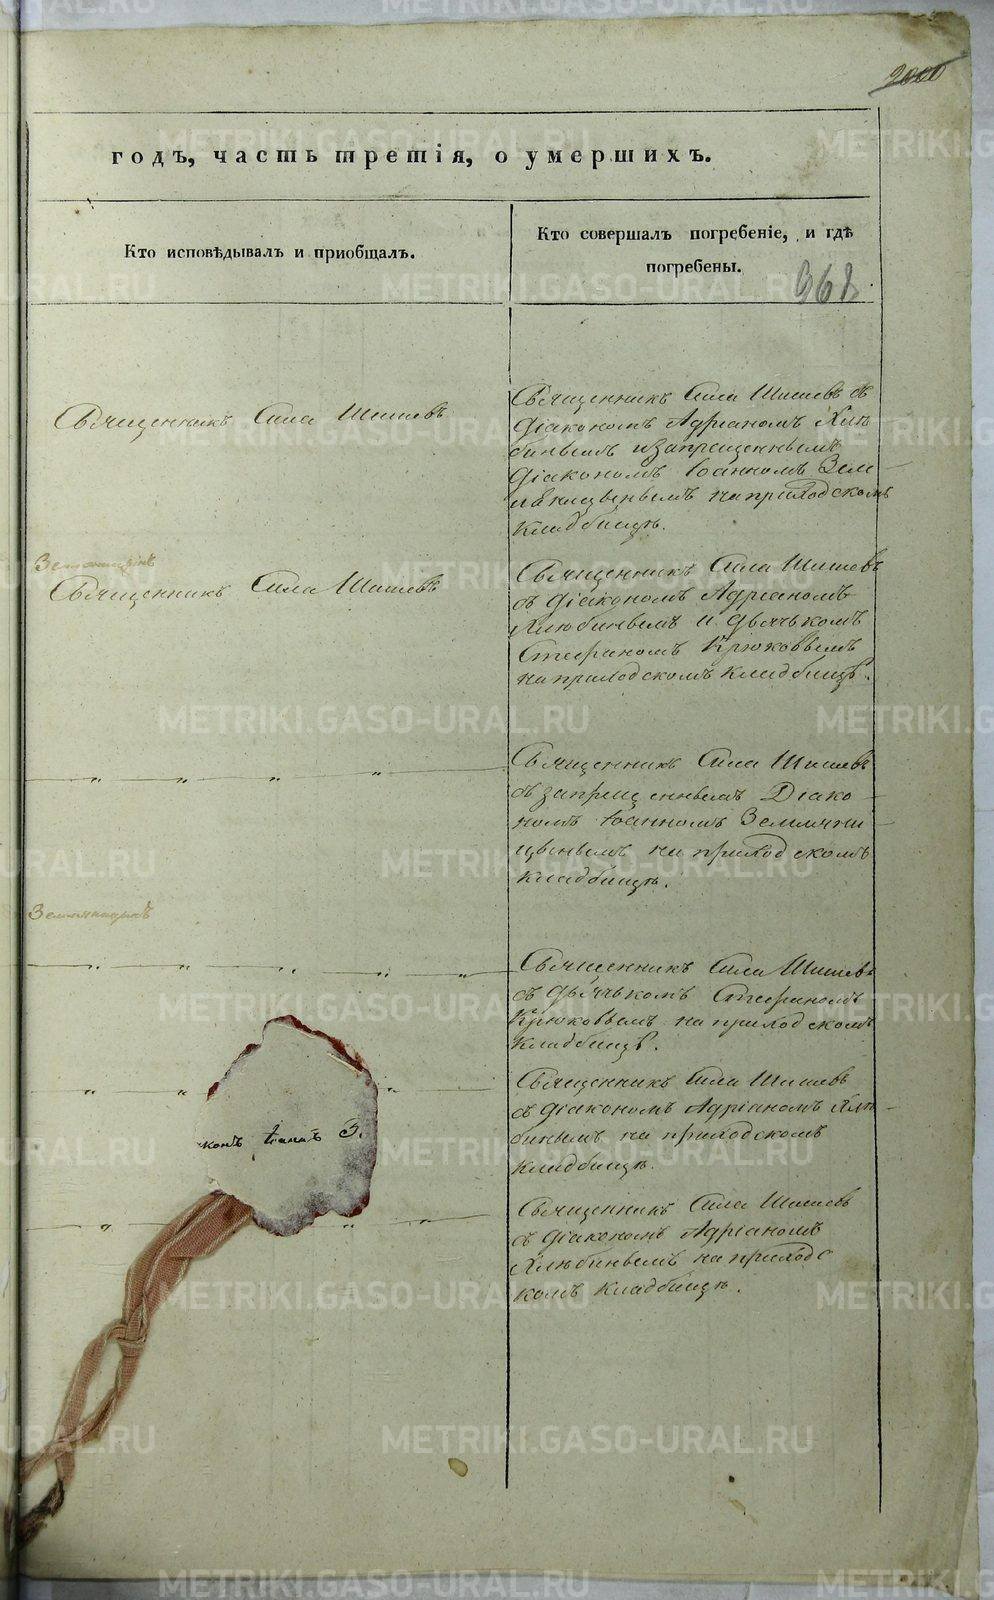 2000
годъ, часть третія, о умершихъ.
Кто исповѣдывалъ и пріобщалъ.
Кто совершалъ погребеніе, и гдѣ
погребены.
968
Священникъ Сила Шишевъ
Священникъ Сила Шишевъ съ
діакономъ Адріаномъ Хлю
бинымъ и запрещеннымъ
діакономъ Іоанномъ Зем
ляницынымъ на приходскомъ
кладбищѣ.
Священникъ Сила Шишевъ
Священникъ Сила Шишевъ
съ діакономъ Адріаномъ
Хлюбинымъ и дьячькомъ
Стефаномъ Крюковымъ
на приходскомъ кладбищѣ.
Священникъ Сила Шишевъ
съ запрещеннымъ Діако
номъ Іоанномъ Земляни
цынымъ на приходскомъ
кладбищѣ.
Священникъ Сила Шишевъ
съ дьячькомъ Стефаномъ
Крюковымъ на приходскомъ
кладбищѣ.
Священникъ Сила Шишевъ
съ діакономъ Адріаномъ Хлю
бинымъ на приходскомъ
кладбищѣ.
конъ Іоаннъ З.
Священникъ Сила Шишевъ
съ діакономъ Адріаномъ
Хлюбинымъ на приходс
комъ кладбищѣ.
METRIKI.GASO-URAL.RU